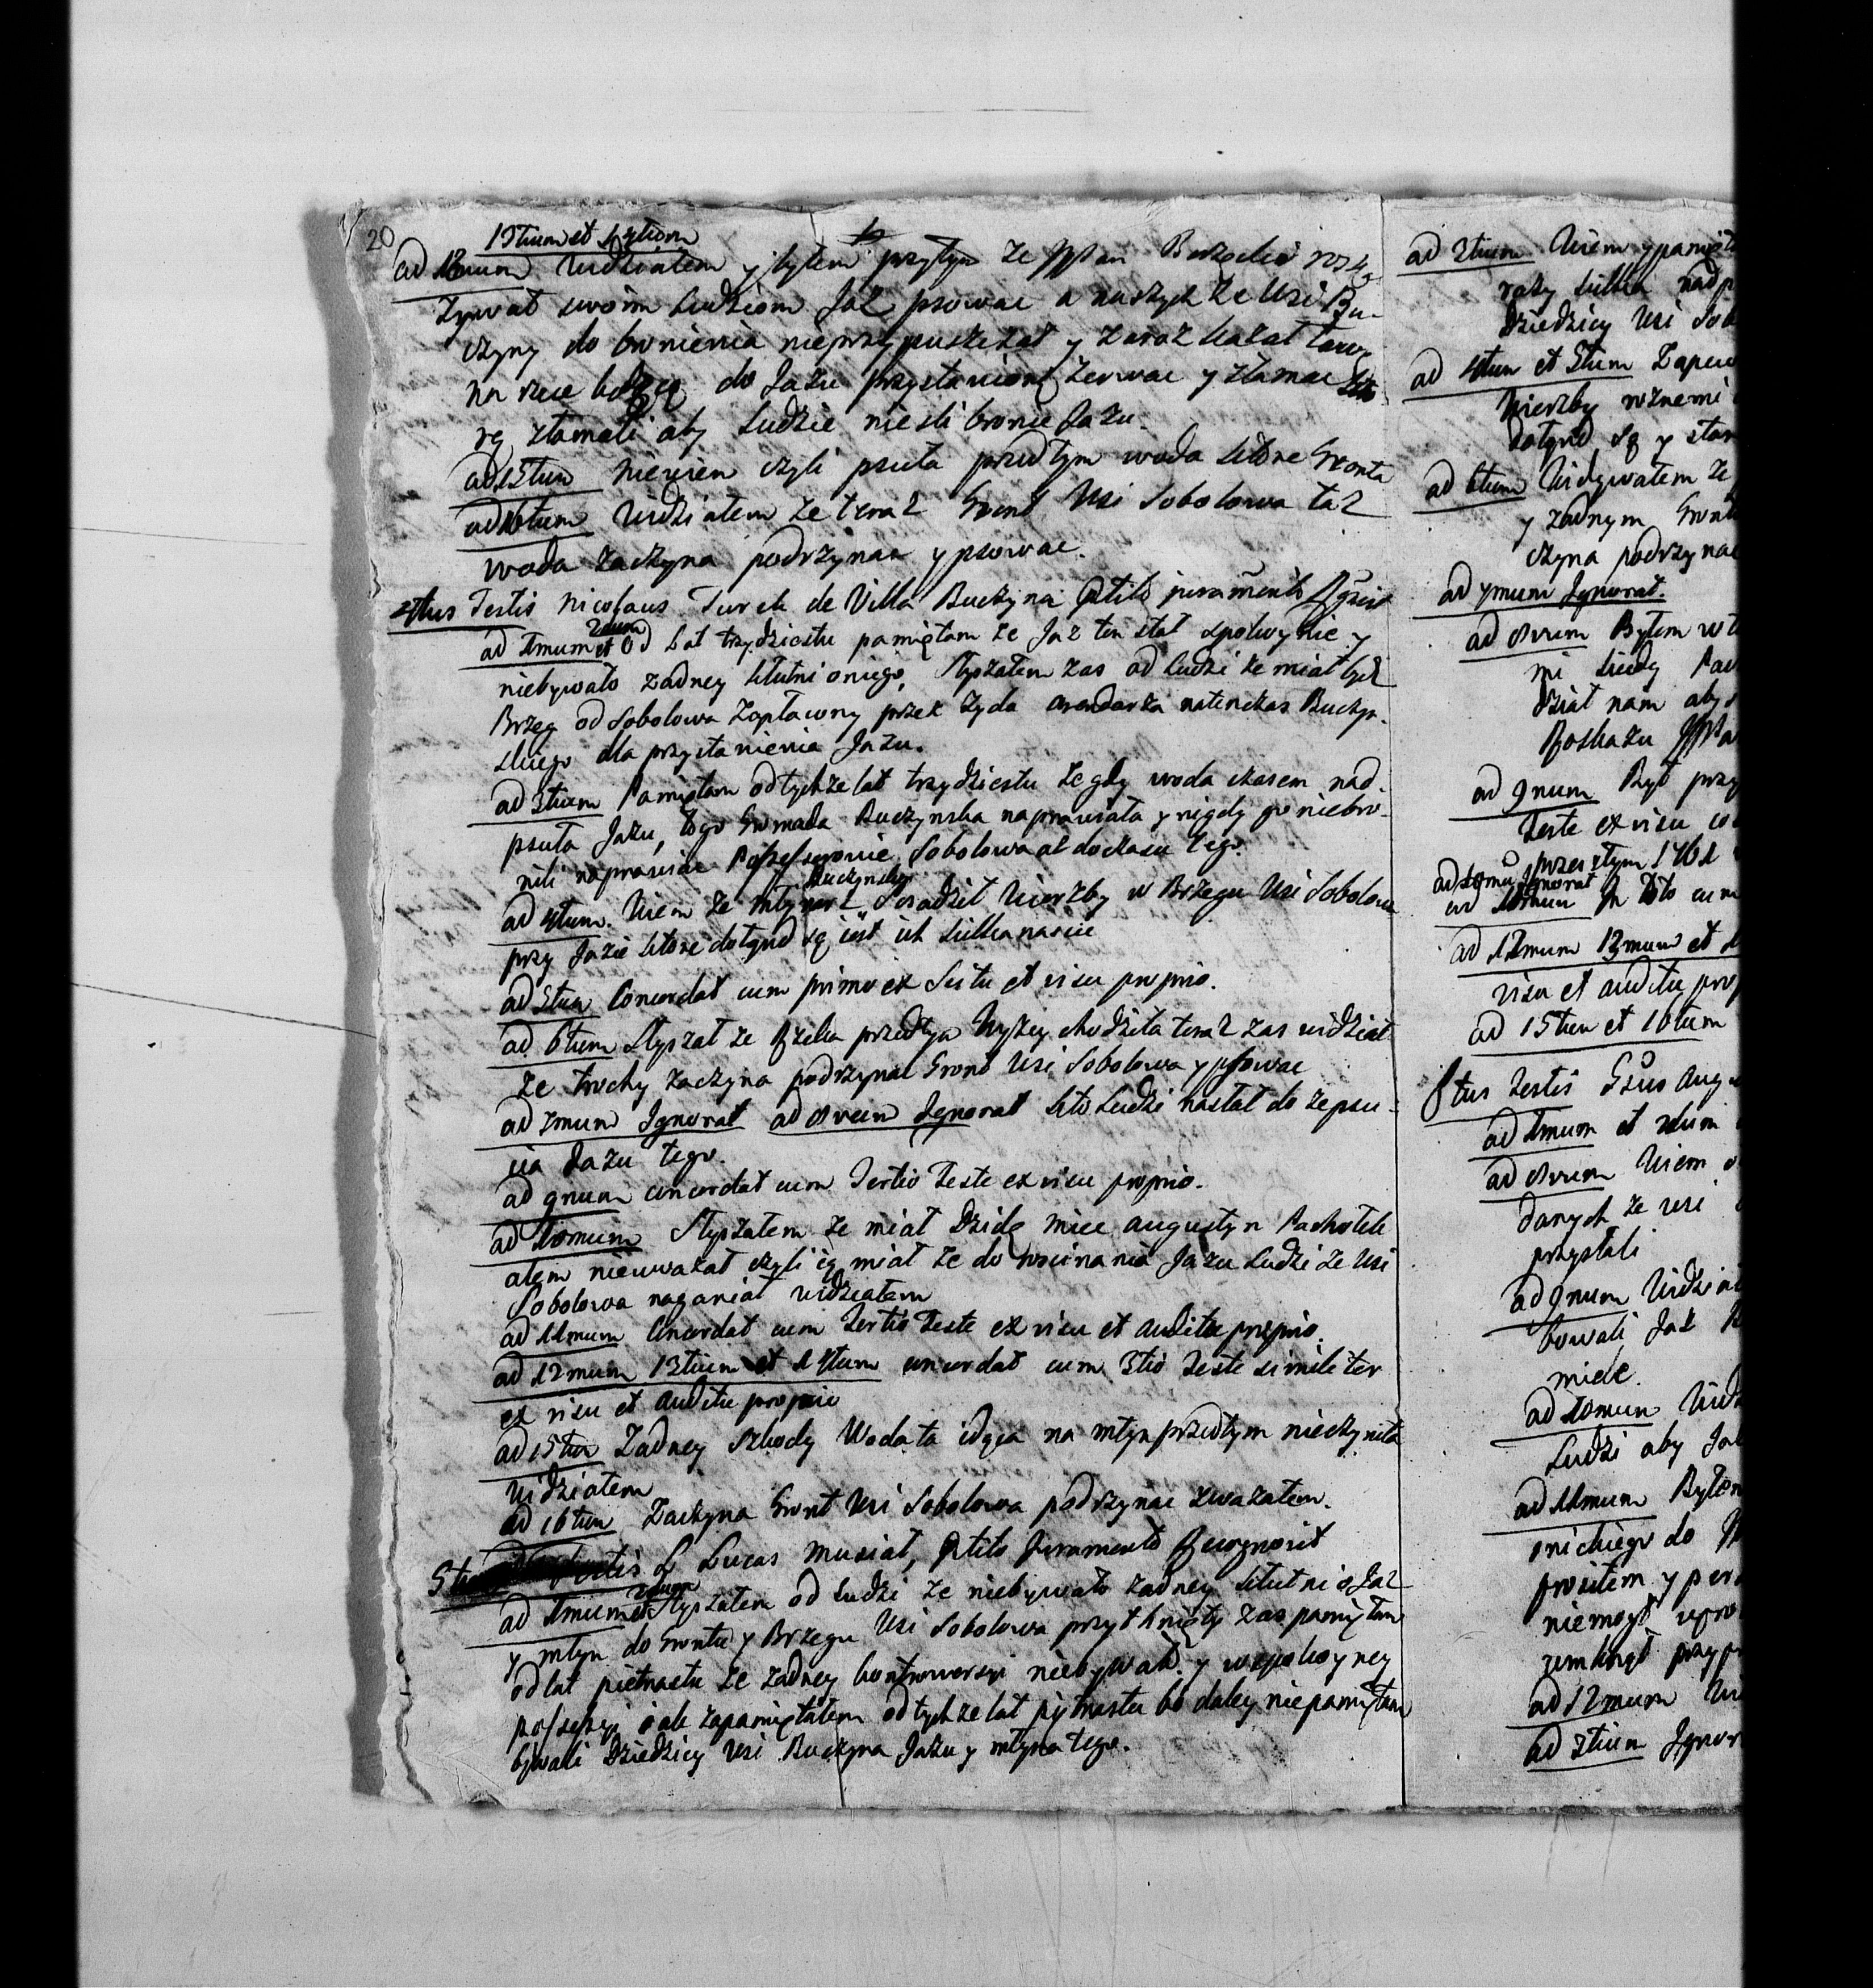 20
13tium et 14tum
ad 12mum Widziałem y byłem przytym ze JPan Burzecki roska
zywał swoim Ludziom Jaz psować a naszych ze Wsi Bu-
czyny do bronienia nieprzypuszczał y zaraz kazał ławę
na rzece będącą do Jazu przystawioną zerwać y złamać
rą złamali aby Ludzie nieśli bronić Jazu.
ad 15tum Niewiem czyli psuła przedtym woda które Gronta
ad 16tum Widziałem ze teraz Gront Wsi Sobolowa taż
woda zaczyna podrzynać y psować.
4tus Testis Nicolaus Turek de Villa Buczyna Pttito juramento Rgscit
ad 1mum et 2dum Od Lat trzydziestu pamiętam ze Jaz ten stał spokoynie y
niebywało zadney kłutni oniego, słyszałem zas od ludzi ze miał bydź
Brzeg od Sobolowa zapłacony przez Zyda Arendarza natenczas Buczyn-
skiego dla przystawienia Jazu.
ad 3tium Pamiętam od tychże lat trzydziestu ze gdy woda czasem nad-
psuła Jazu, tego Gromada Buczynska naprawiała y nigdy go niebro-
nili naprawiać Possessorowie Sobolowa aż do czasu tego.
ad 4tum. Wiem ze Młynarz Buczynsky sadził Wierzby w Brzegu Wsi Sobolowa
przy Jazie które dotąd są iest ich kilkanascie
ad 5tum Concordat cum primo ex Scitu et visu proprio.
ad 6tum Słyszał ze Rzeka przedtym Wyżey chodziła teraz zas widział
ze trochy zaczyna podrzynać Gront Wsi Sobolowa y psować
ad 7mum Ignorat ad 8vum Ignorat kto Ludzi nasłał do zepsu-
cia Jazu tego.
ad 9num concordat cum Tertio Teste ex visu proprio.
ad 10mum Słyszałem ze miał Dzidę mieć Augustyn Pachołek
alem nieuwazał czyli ią miał ze do wycinania Jazu Ludzi ze Wsi
Sobolowa naganiał widziałem
ad 11mum Concordat cum Tertio Teste ex visu et auditu proprio.
ad 12mum 13tium et 14tum concordat cum 3tio Teste similiter
ex visu et auditu proprio
ad 15tum Zadney szkody Woda ta idąca na młyn przedtym nieczyniła
widziałem
ad 16tum Zaczyna Gront Wsi Sobolowa podrzynać zwazałem.
5tus Testis Lucas Musiał, Pttito Juramento Recognoscit
ad 1mum et 2dum Słyszałem od Ludzi ze niebywało zadney kłutni o Jaz
y młyn do Grontu y Brzegu Wsi Sobolowa przytknięty zas pamiętam
od lat pietnastu ze zadney kontrowersyi niebywało y wspokoyney
possessyi iak zapamiętałem od tychze lat piętnastu bo daley niepamiętam
bywali Dziedzicy Wsi Buczyna Jazu y młyna tego.
ad 3tium Wiem y pamięt
razy kilka nad p
dziedzicy Wsi Sob
ad 4tum et 5tum Zapew
Wierzby roznemi
dotąd są y star
ad 6tum Widywałem ze
y zadnym Gront
czyna podrzynać
ad 7mum Ignorat.
ad 8vum Byłem w t
mi kiedy Pac
dział nam aby
Roskazu JPa
ad 9num Był przy
Teste ex visu co
przeszłym 1761
ad 10mum Ignorat
ad 11mum
ad 12mum 13mum et 1
visu et auditu prop
ad 15tum et 16tum
6tus Testis Gsus Aug
ad 1mum et 2dum
ad 8vum Wiem o
danych ze wsi
przysłali
ad 9num Widział
bowali Jaz
miele.
ad 10mum Widz
Ludzi aby Ja
ad 11mum Byłem
nickiego do
prosiłem y per
niemogł upro
zemknął przyp
ad 12mum Wi
ad 3tium Ignor